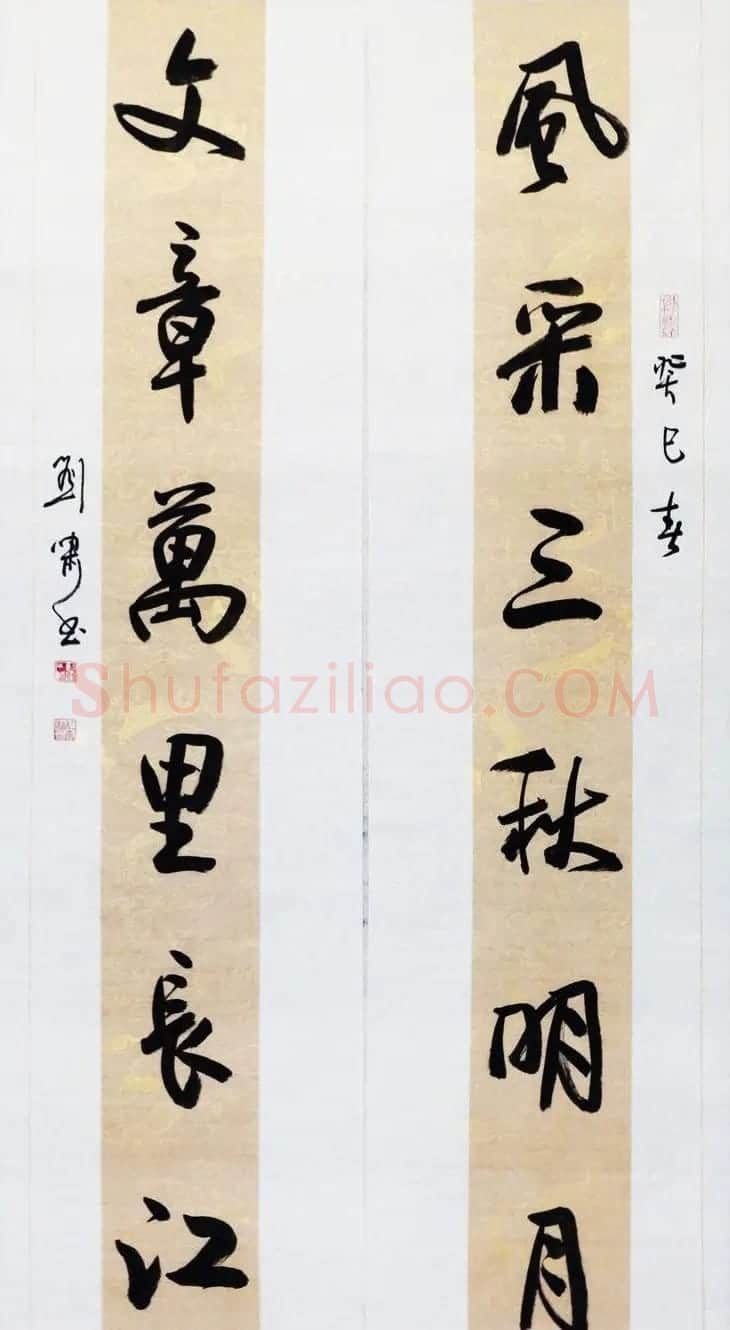 癸巳春
風采三秋明月
文章萬里長江
劉嘯书
Shufaziliao.COM